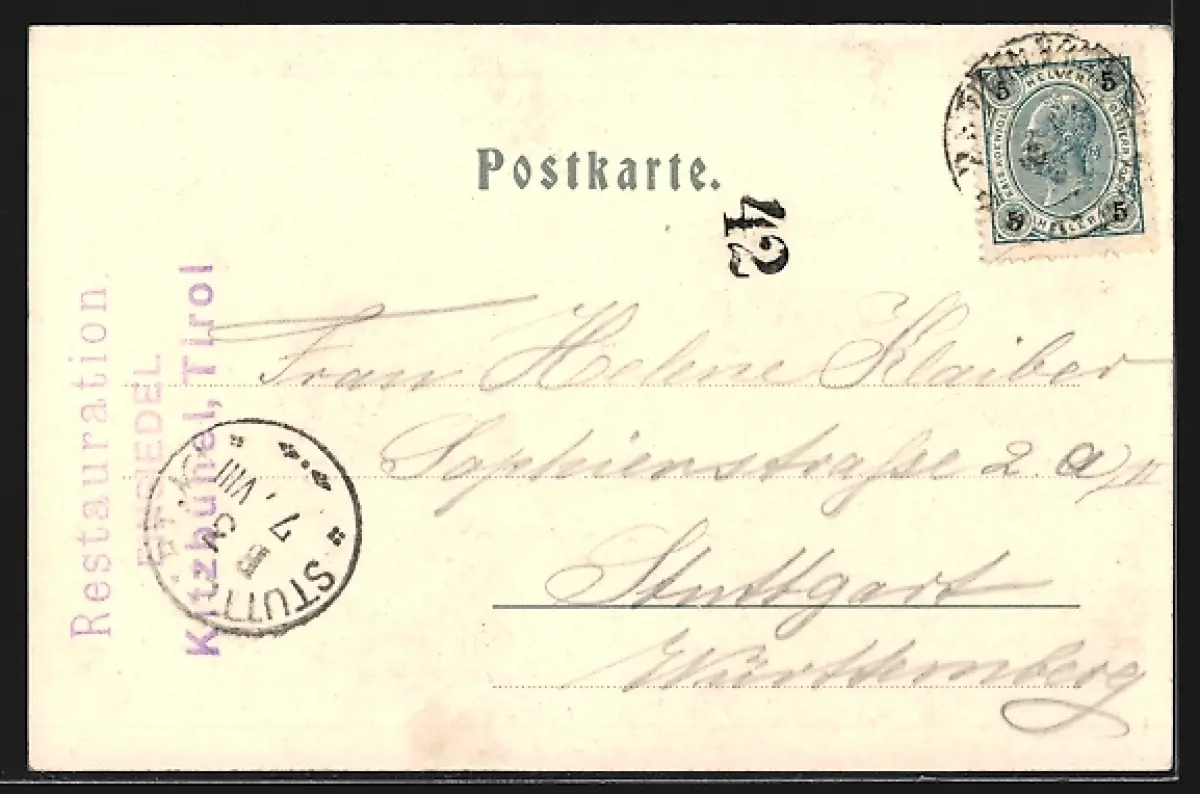 Postkarte.
42
5 5
5 HELLER 5
Frau Helene Klaiber
Sophienstraße 2 a
Stuttgart
Württemberg
Restauration
EINSIEDEL
Kitzbühel, Tirol
7 VIII